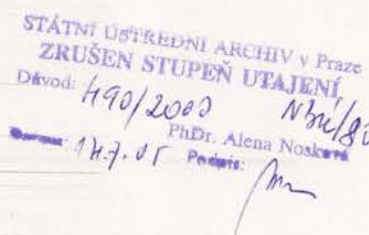 STÁTNÍ ÚSTŘEDNÍ ARCHIV v Praze
ZRUŠEN STUPEŇ UTAJENÍ
Důvod: 490/2000
PhDr. Alena Nosková
14.7.05 Podpis: